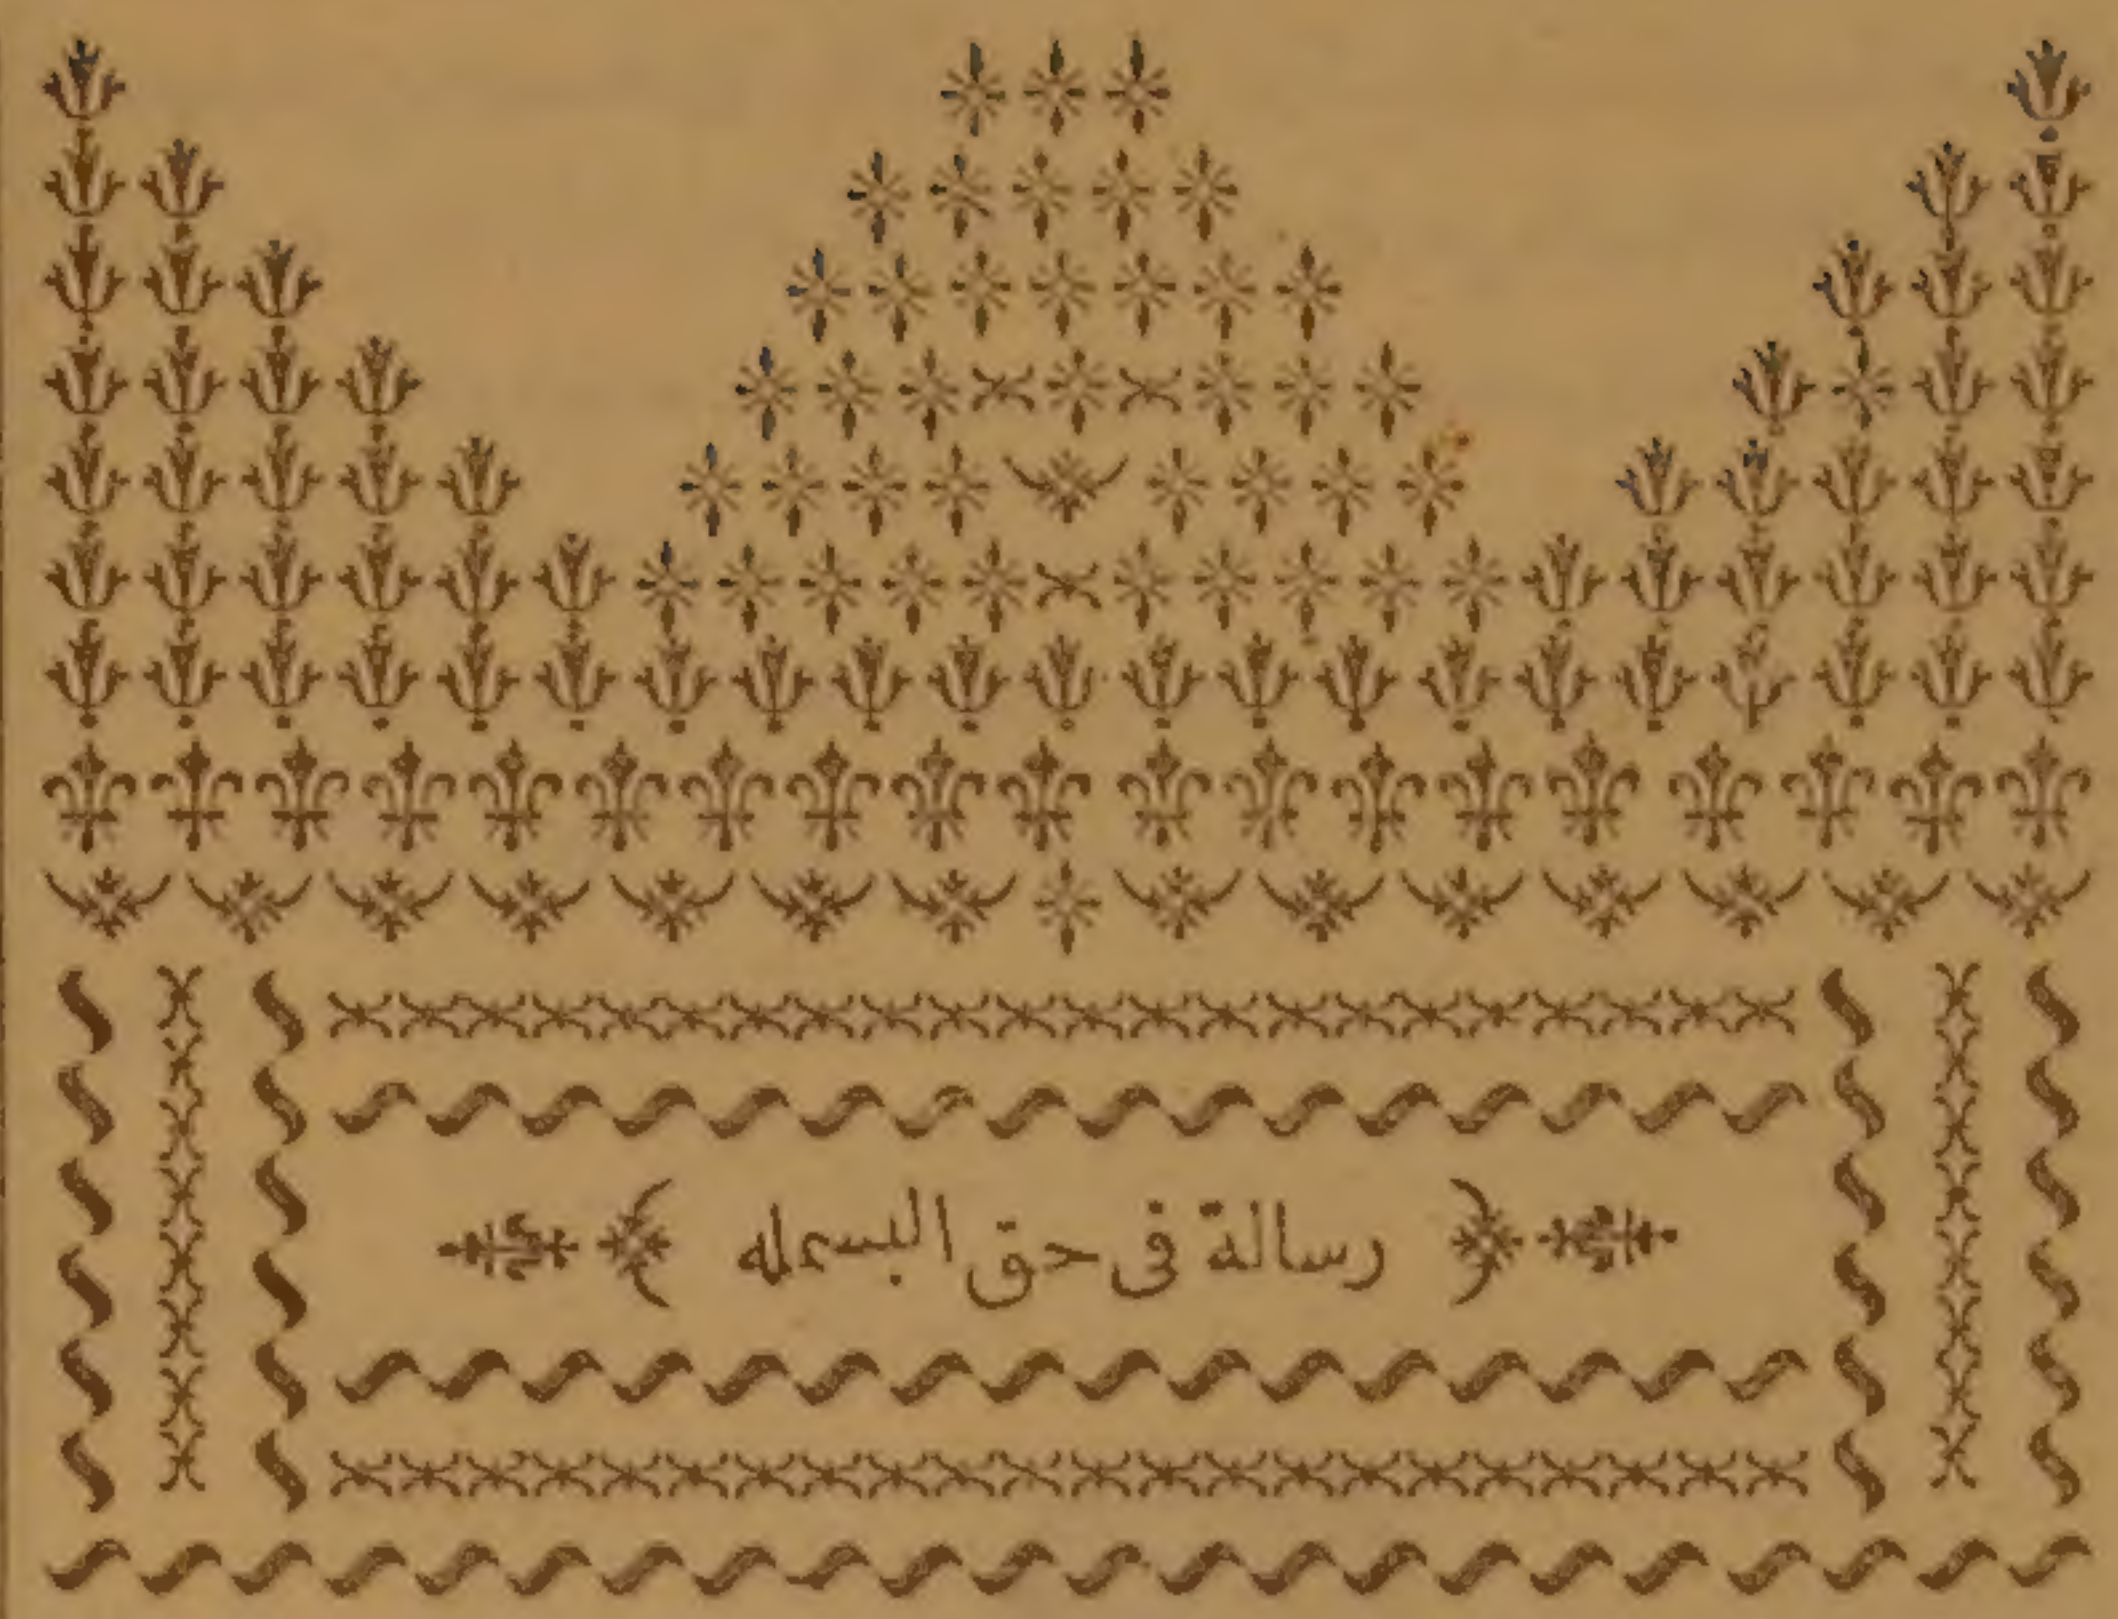 رسالة فى حق البسمله